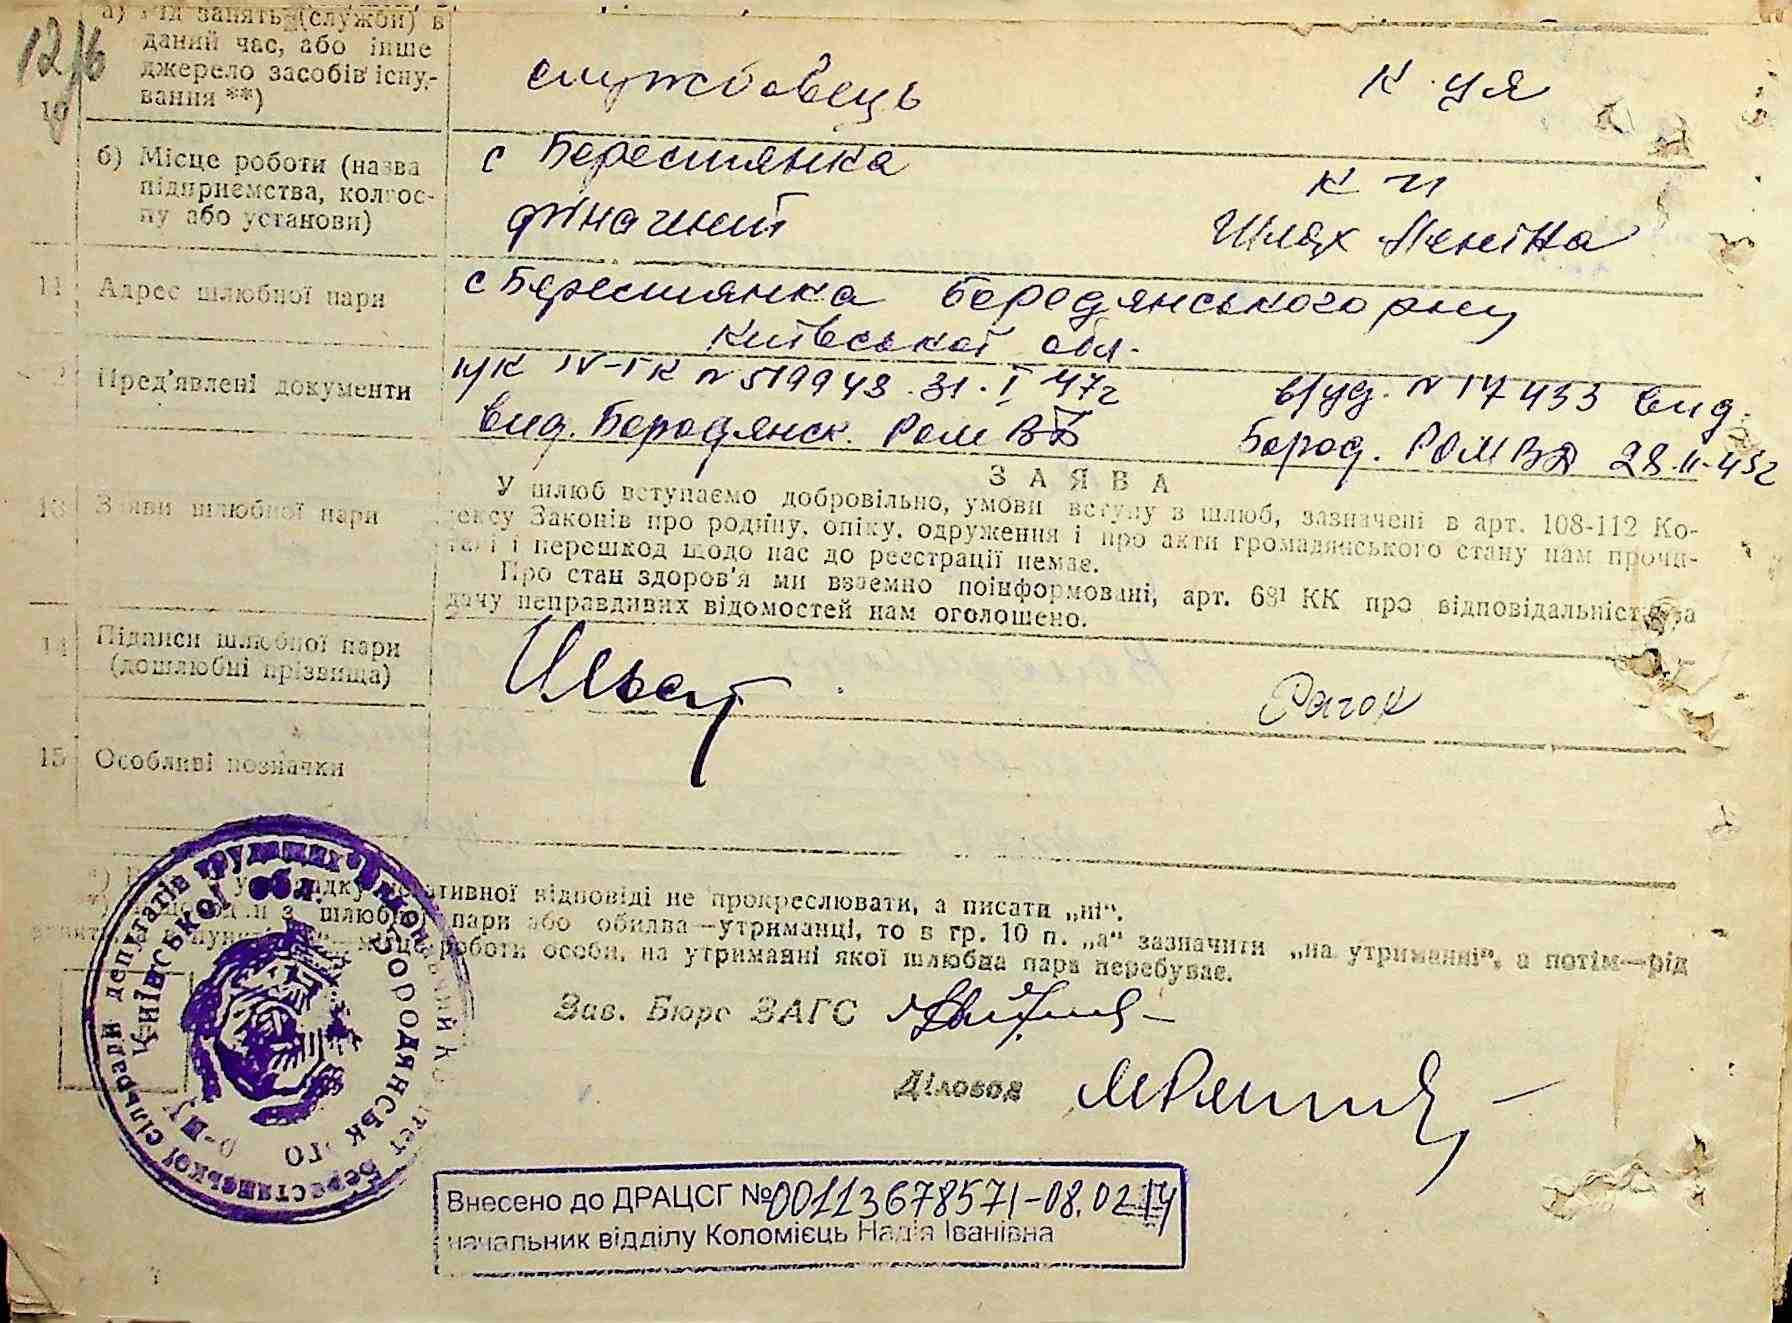 12/6
а) Рід занять (служби) в
даний час, або інше
джерело засобів існу-
вання **)
службовець к-ця
10
б) Місце роботи (назва
підприємства, колгос-
пу або установи)
с Берестянка
фіначний
Шлях Леніна
11 Адрес шлюбної пари
с Берестянка Бородянського р-ну
Київської обл.
12 Пред'явлені документи
IV-ГК № 519943 31.I 47г
вид. Бородянск.
в/уд. № 17433 вид.
Бород. РОМВД
13 Заяви шлюбної пари
ЗАЯВА
У шлюб вступаємо добровільно, умови вступу в шлюб, зазначені в арт. 108-112 Ко-
дексу Законів про родину, опіку, одруження і про акти громадянського стану нам прочи-
тані і перешкод щодо нас до реєстрації немає.
Про стан здоров'я ми взаємно поінформовані, арт. 68¹ КК про відповідальність за
дачу неправдивих відомостей нам оголошено.
14 Підписи шлюбної пари
(дошлюбні прізвища)
15 Особливі позначки
негативної відповіді не прокреслювати, а писати „ні“.
з шлюбної пари або обидва—утриманці, то в гр. 10 п. „а“ зазначити „на утриманні“, а потім—рід
роботи особи, на утриманні якої шлюбна пара перебуває.
Зав. Бюро ЗАГС
Діловод
Виконавчий комітет Берестянської сільради депутатів трудящих
Бородянського р-ну Київської обл.
Внесено до ДРАЦСГ №00113678571-08.02.14
начальник відділу Коломієць Надія Іванівна